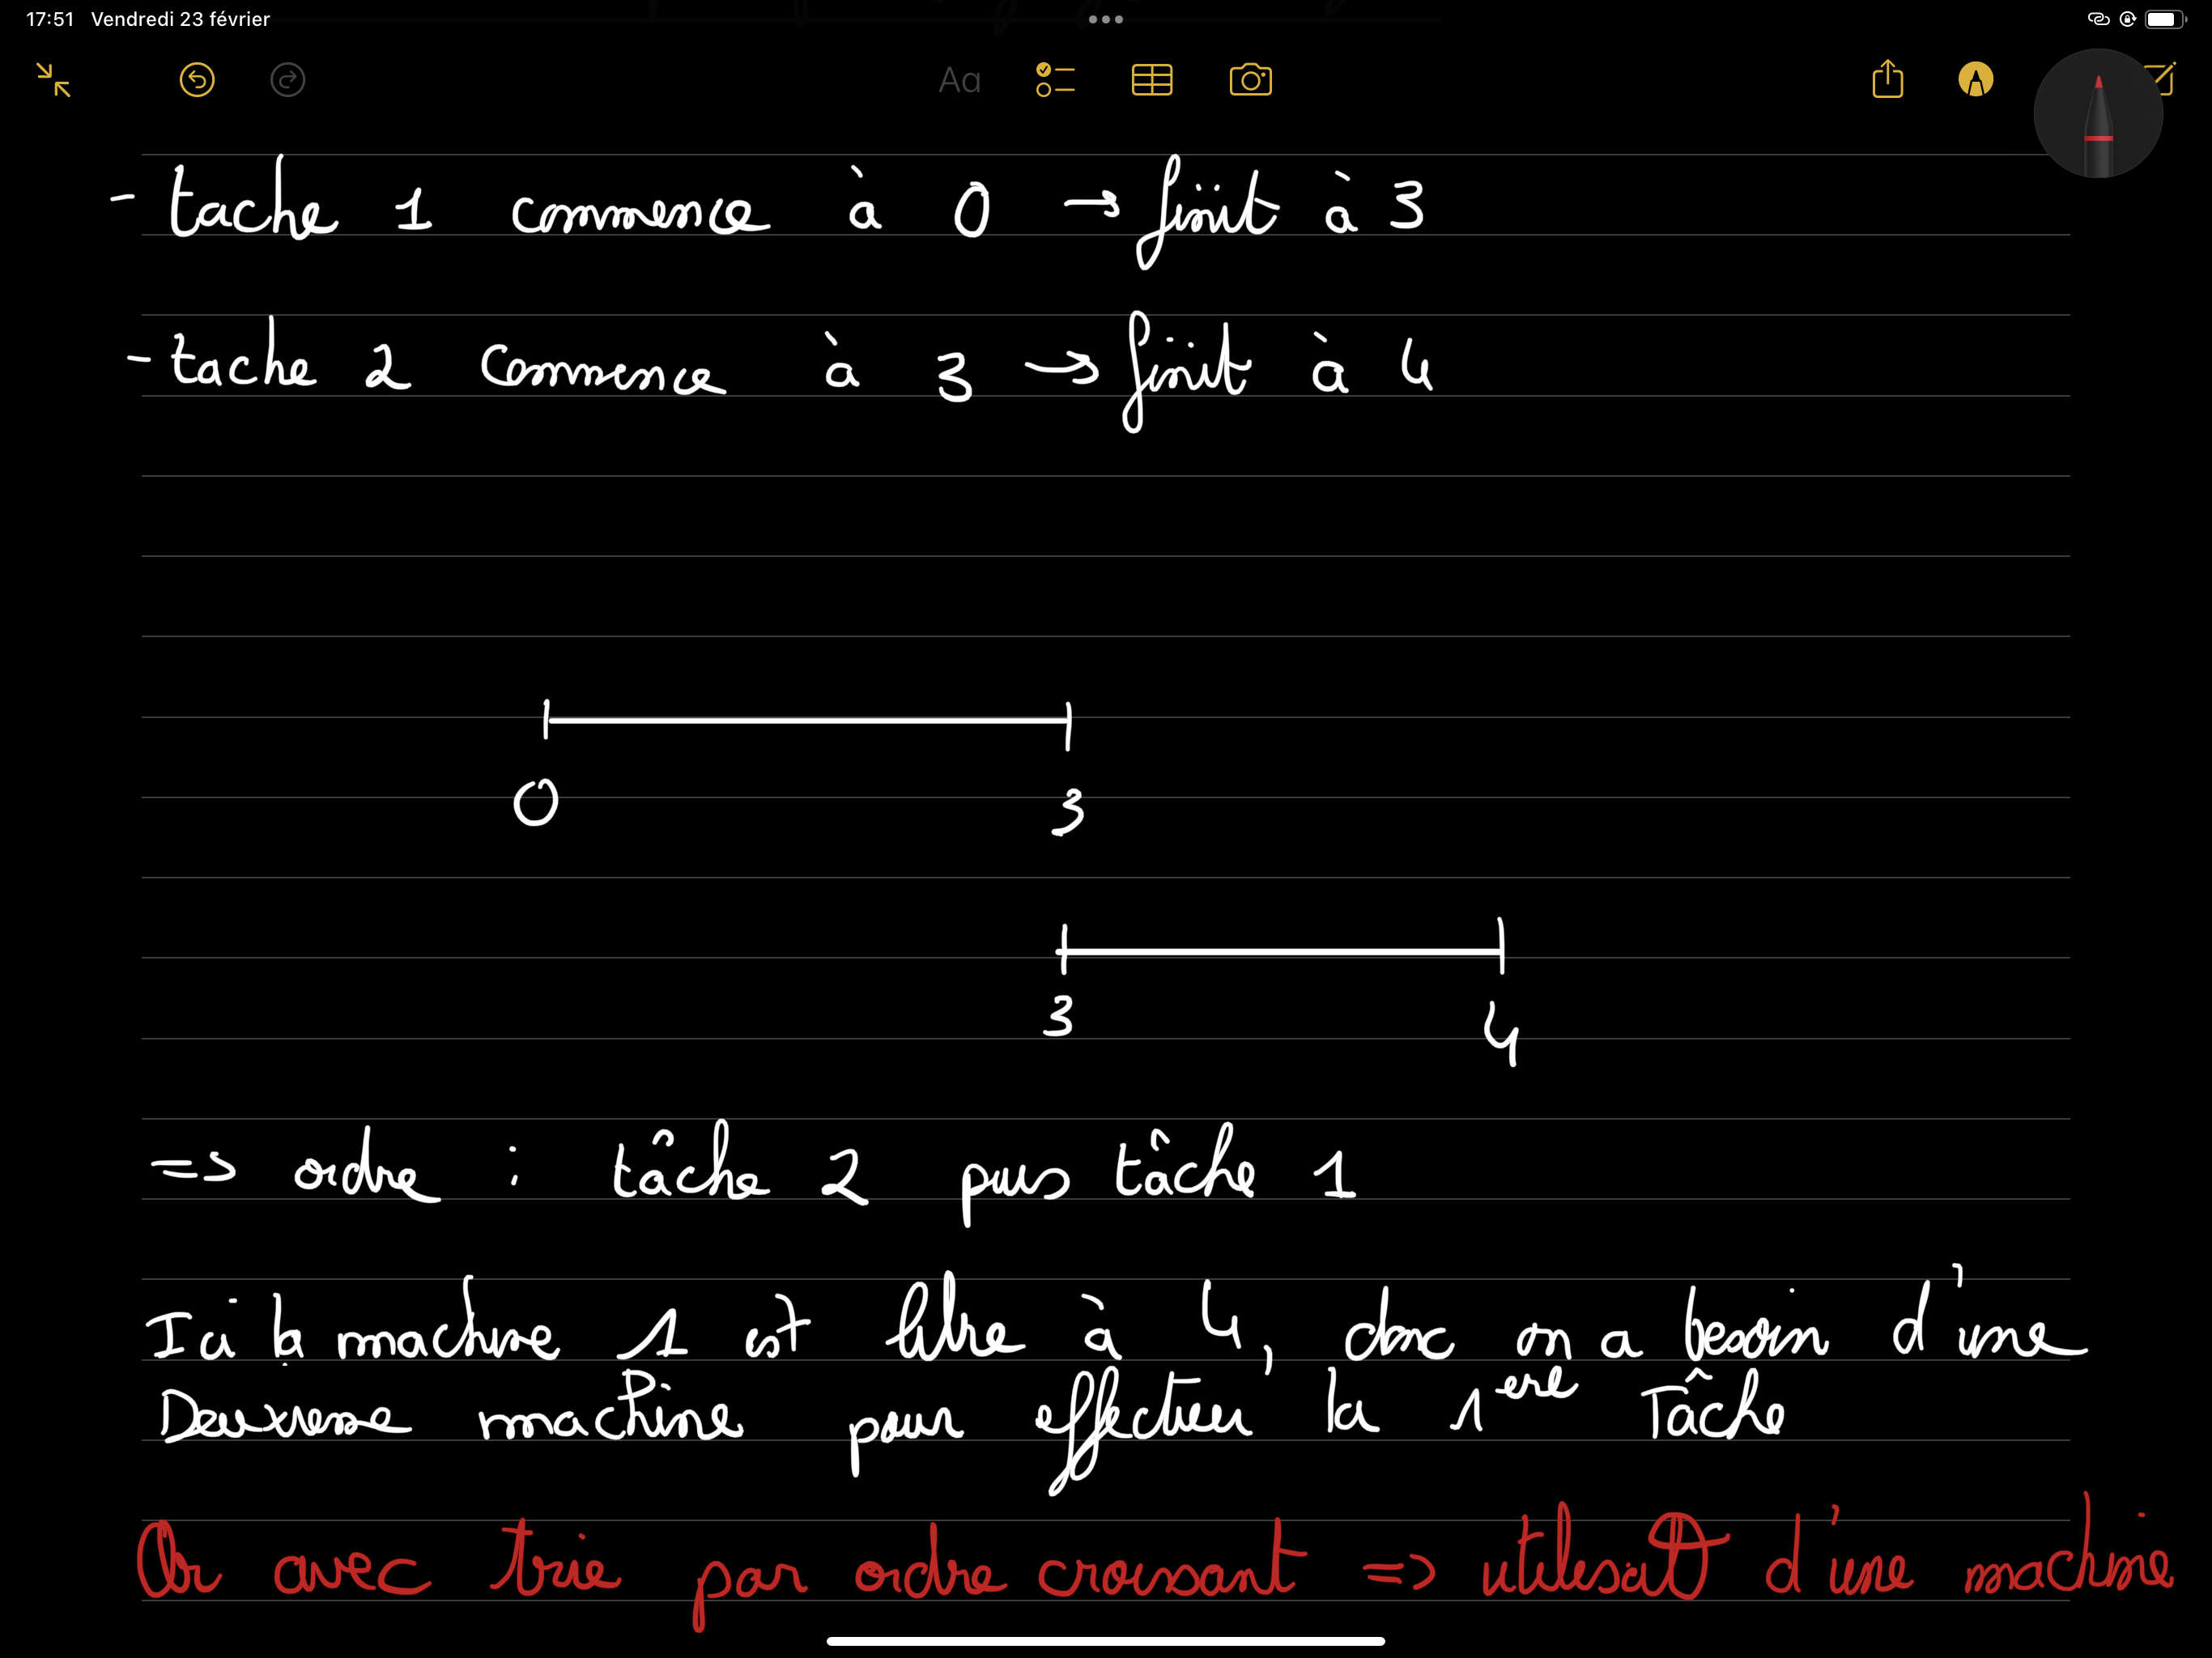 17:51 Vendredi 23 février
Aa
- tache 1 commence à 0 → finit à 3
- tache 2 commence à 3 → finit à 4
0 3
3 4
=> ordre : tâche 2 puis tâche 1
Ici la machine 1 est libre à 4, donc on a besoin d'une
Deuxieme machine pour effectuer la 1ere Tâche
Or avec trie par ordre croissant => utilisat° d'une machine